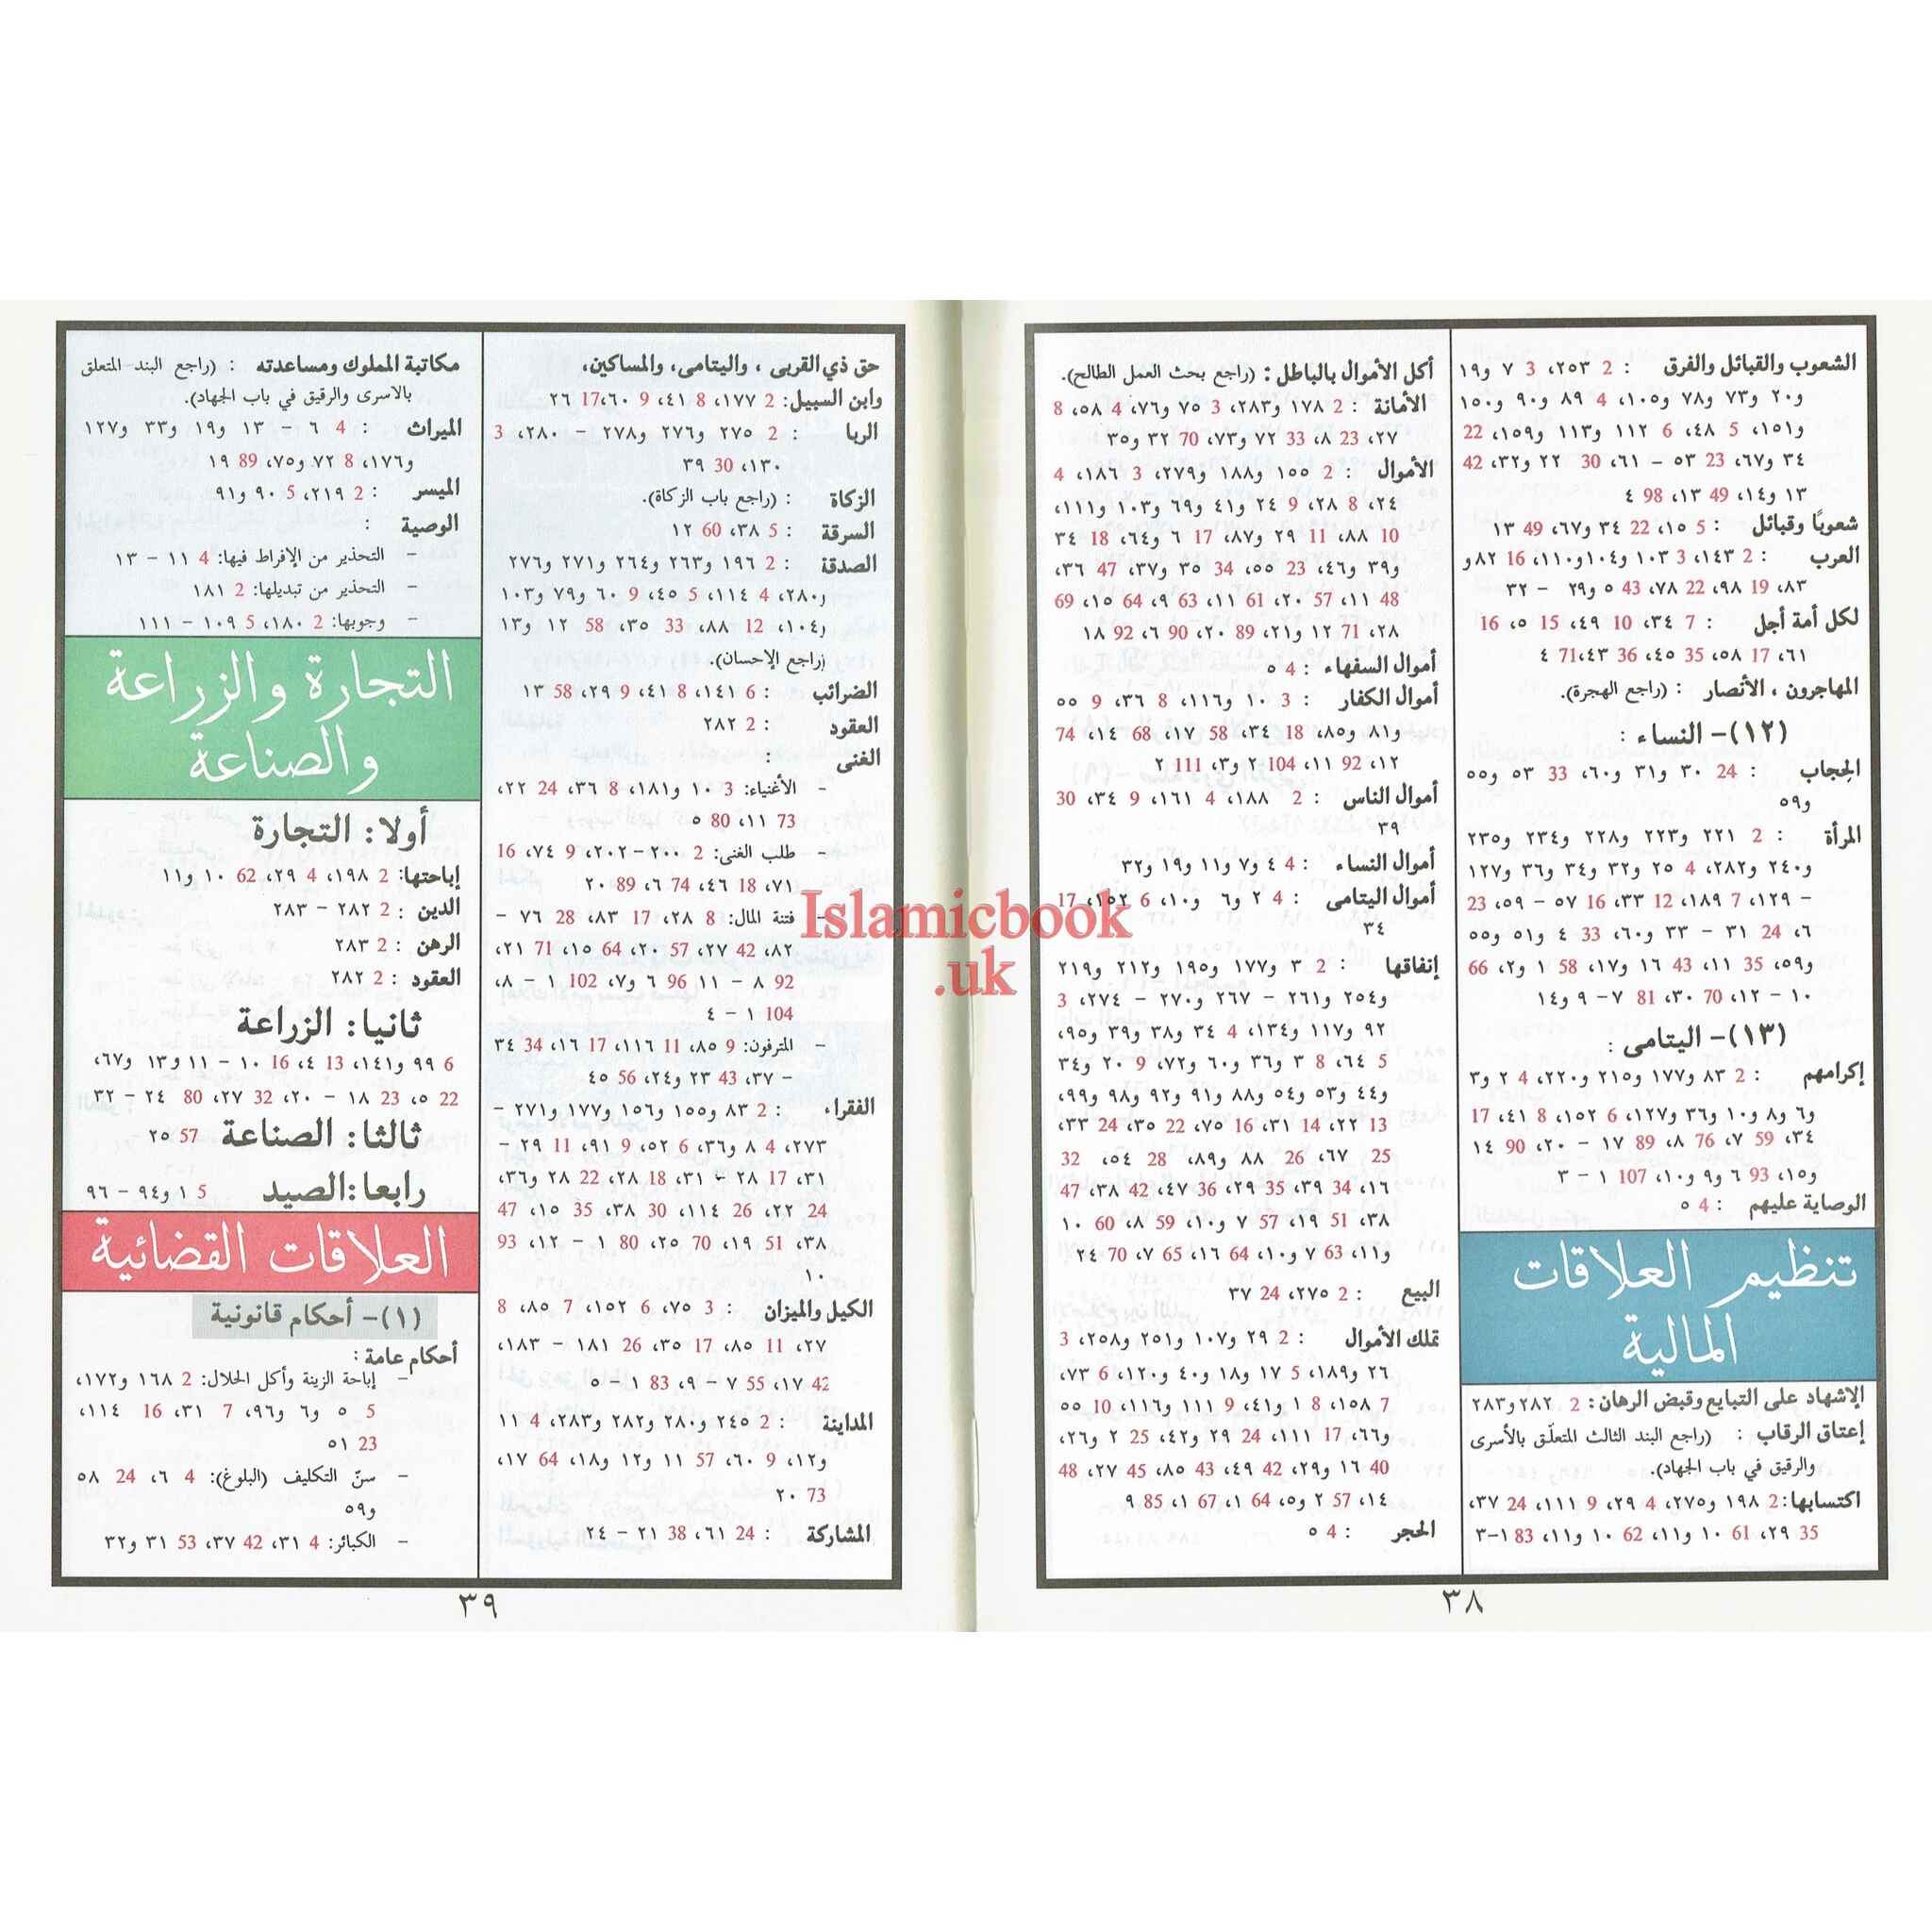 الشعوب والقبائل والفرق : 2 ٢٥٣، 3 ٧ و١٩
و٢٠ و٧٣ و٧٨ و١٠٥، 4 ٨٩ و٩٠ و١٥٠
و١٥١، 5 ٤٨، 6 ١١٢ و١١٣ و١٥٩، 22
٣٤ و٦٧، 23 ٥٣ – ٦١، 30 ٢٢ و٣٢، 42
١٣ و١٤، 49 ١٣، 98 ٤
شعوبًا وقبائل : 5 ١٥، 22 ٣٤ و٦٧، 49 ١٣
العرب : 2 ١٤٣، 3 ١٠٣ و١٠٤ و١١٠، 16 ٨٢ و
٨٣، 19 ٩٨، 22 ٧٨، 43 ٥ و٢٩ – ٣٢
لكل أمة أجل : 7 ٣٤، 10 ٤٩، 15 ٥، 16
٦١، 17 ٥٨، 35 ٤٥، 36 ٤٣، 71 ٤
المهاجرون ، الأنصار : (راجع الهجرة).
(١٢)- النساء :
الحجاب : 24 ٣٠ و٣١ و٦٠، 33 ٥٣ و٥٥
و٥٩
المرأة : 2 ٢٢١ و٢٢٣ و٢٢٨ و٢٣٤ و٢٣٥
و٢٤٠ و٢٨٢، 4 ٢٥ و٣٢ و٣٤ و٣٦ و١٢٧
– ١٢٩، 7 ١٨٩، 12 ٣٣، 16 ٥٧ – ٥٩، 23
٦، 24 ٣١ – ٣٣ و٦٠، 33 ٤ و٥١ و٥٥
و٥٩، 35 ١١، 43 ١٦ و١٧، 58 ١ و٢، 66
١٠ – ١٢، 70 ٣٠، 81 ٧ – ٩ و١٤
(١٣)- اليتامى :
إكرامهم : 2 ٨٣ و١٧٧ و٢١٥ و٢٢٠، 4 ٢ و٣
و٦ و٨ و١٠ و٣٦ و١٢٧، 6 ١٥٢، 8 ٤١، 17
٣٤، 59 ٧، 76 ٨، 89 ١٧ – ٢٠، 90 ١٤
و١٥، 93 ٦ و٩ و١٠، 107 ١ – ٣
الوصاية عليهم : 4 ٥
تنظيم العلاقات
المالية
الإشهاد على التبايع وقبض الرهان: 2 ٢٨٢ و٢٨٣
إعتاق الرقاب : (راجع البند الثالث المتعلّق بالأسرى
والرقيق في باب الجهاد).
اكتسابها: 2 ١٩٨ و٢٧٥، 4 ٢٩، 9 ١١١، 24 ٣٧،
35 ٢٩، 61 ١٠ و١١، 62 ١٠ و١١، 83 ١-٣
أكل الأموال بالباطل : (راجع بحث العمل الطالح).
الأمانة : 2 ١٧٨ و٢٨٣، 3 ٧٥ و٧٦، 4 ٥٨، 8
٢٧، 23 ٨، 33 ٧٢ و٧٣، 70 ٣٢ و٣٥
الأموال : 2 ١٥٥ و١٨٨ و٢٧٩، 3 ١٨٦، 4
٢٤، 8 ٢٨، 9 ٢٤ و٤١ و٦٩ و١٠٣ و١١١،
10 ٨٨، 11 ٢٩ و٨٧، 17 ٦ و٦٤، 18 ٣٤
و٣٩ و٤٦، 23 ٥٥، 34 ٣٥ و٣٧، 47 ٣٦،
48 ١١، 57 ٢٠، 61 ١١، 63 ٩، 64 ١٥، 69
٢٨، 71 ١٢ و٢١، 89 ٢٠، 90 ٦، 92 ١٨
أموال السفهاء : 4 ٥
أموال الكفار : 3 ١٠ و١١٦، 8 ٣٦، 9 ٥٥
و٨١ و٨٥، 18 ٣٤، 58 ١٧، 68 ١٤، 74
١٢، 92 ١١، 104 ٢ و٣، 111 ٢
أموال الناس : 2 ١٨٨، 4 ١٦١، 9 ٣٤، 30
٣٩
أموال النساء : 4 ٤ و٧ و١١ و١٩ و٣٢
أموال اليتامى : 4 ٢ و٦ و١٠، 6 ١٥٢، 17
٣٤
إنفاقها : 2 ٣ و١٧٧ و١٩٥ و٢١٢ و٢١٩
و٢٥٤ و٢٦١ – ٢٦٧ و٢٧٠ – ٢٧٤، 3
٩٢ و١١٧ و١٣٤، 4 ٣٤ و٣٨ و٣٩ و٩٥،
5 ٦٤، 8 ٣ و٣٦ و٦٠ و٧٢، 9 ٢٠ و٣٤
و٤٤ و٥٣ و٥٤ و٨٨ و٩١ و٩٢ و٩٨ و٩٩،
13 ٢٢، 14 ٣١، 16 ٧٥، 22 ٣٥، 24 ٣٣،
25 ٦٧، 26 ٨٨ و٨٩، 28 ٥٤، 32
١٦، 34 ٣٩، 35 ٢٩، 36 ٤٧، 42 ٣٨، 47
٣٨، 51 ١٩، 57 ٧ و١٠، 59 ٨، 60 ١٠
و١١، 63 ٧ و١٠، 64 ١٦، 65 ٧، 70 ٢٤
البيع : 2 ٢٧٥، 24 ٣٧
تملك الأموال : 2 ٢٩ و١٠٧ و٢٥١ و٢٥٨، 3
٢٦ و١٨٩، 5 ١٧ و١٨ و٤٠ و١٢٠، 6 ٧٣،
7 ١٥٨، 8 ١ و٤١، 9 ١١١ و١١٦، 10 ٥٥
و٦٦، 17 ١١١، 24 ٢٩ و٤٢، 25 ٢ و٢٦،
40 ١٦ و٢٩، 42 ٤٩، 43 ٨٥، 45 ٢٧، 48
١٤، 57 ٢ و٥، 64 ١، 67 ١، 85 ٩
الحجر : 4 ٥
٣٨
حق ذي القربى ، واليتامى، والمساكين،
وابن السبيل: 2 ١٧٧، 8 ٤١، 9 ٦٠، 17 ٢٦
الربا : 2 ٢٧٥ و٢٧٦ و٢٧٨ – ٢٨٠، 3
١٣٠، 30 ٣٩
الزكاة : (راجع باب الزكاة).
السرقة : 5 ٣٨، 60 ١٢
الصدقة : 2 ١٩٦ و٢٦٣ و٢٦٤ و٢٧١ و٢٧٦
و٢٨٠، 4 ١١٤، 5 ٤٥، 9 ٦٠ و٧٩ و١٠٣
و١٠٤، 12 ٨٨، 33 ٣٥، 58 ١٢ و١٣
(راجع الإحسان).
الضرائب : 6 ١٤١، 8 ٤١، 9 ٢٩، 58 ١٣
العقود : 2 ٢٨٢
الغنى :
– الأغنياء: 3 ١٠ و١٨١، 8 ٣٦، 24 ٢٢،
73 ١١، 80 ٥
– طلب الغنى: 2 ٢٠٠ – ٢٠٢، 9 ٧٤، 16
٧١، 18 ٤٦، 74 ٦، 89 ٢٠
– فتنة المال: 8 ٢٨، 17 ٨٣، 28 ٧٦ –
٨٢، 42 ٢٧، 57 ٢٠، 64 ١٥، 71 ٢١،
92 ٨ – ١١ 96 ٦ و٧، 102 ١ – ٨،
104 ١ – ٤
– المترفون: 9 ٨٥، 11 ١١٦، 17 ١٦، 34 ٣٤
– ٣٧، 43 ٢٣ و٢٤، 56 ٤٥
الفقراء : 2 ٨٣ و١٥٥ و١٥٦ و١٧٧ و٢٧١ –
٢٧٣، 4 ٨ و٣٦، 6 ٥٢، 9 ٩١، 11 ٢٩ –
٣١، 17 ٢٨ – ٣١، 18 ٢٨، 22 ٢٨ و٣٦،
24 ٢٢، 26 ١١٤، 30 ٣٨، 35 ١٥، 47
٣٨، 51 ١٩، 70 ٢٥، 80 ١ – ١٢، 93
١٠
الكيل والميزان : 3 ٧٥، 6 ١٥٢، 7 ٨٥، 8
٢٧، 11 ٨٥، 17 ٣٥، 26 ١٨١ – ١٨٣،
42 ١٧، 55 ٧ – ٩، 83 ١ – ٥
المداينة : 2 ٢٤٥ و٢٨٠ و٢٨٢ و٢٨٣، 4 ١١
و١٢، 9 ٦٠، 57 ١١ و١٢ و١٨، 64 ١٧،
73 ٢٠
المشاركة : 24 ٦١، 38 ٢١ – ٢٤
مكاتبة المملوك ومساعدته : (راجع البند المتعلق
بالاسرى والرقيق في باب الجهاد).
الميراث : 4 ٦ – ١٣ و١٩ و٣٣ و١٢٧
و١٧٦، 8 ٧٢ و٧٥، 89 ١٩
الميسر : 2 ٢١٩، 5 ٩٠ و٩١
الوصية :
– التحذير من الإفراط فيها: 4 ١١ – ١٣
– التحذير من تبديلها: 2 ١٨١
– وجوبها: 2 ١٨٠، 5 ١٠٩ – ١١١
التجارة والزراعة
والصناعة
أولا: التجارة
إباحتها: 2 ١٩٨، 4 ٢٩، 62 ١٠ و١١
الدين : 2 ٢٨٢ – ٢٨٣
الرهن : 2 ٢٨٣
العقود : 2 ٢٨٢
ثانيا: الزراعة
6 ٩٩ و١٤١، 13 ٤، 16 ١٠ – ١١ و١٣ و٦٧،
22 ٥، 23 ١٨ – ٢٠، 32 ٢٧، 80 ٢٤ – ٣٢
ثالثا: الصناعة 57 ٢٥
رابعا: الصيد 5 ١ و٩٤ – ٩٦
العلاقات القضائية
(١)- أحكام قانونية
أحكام عامة :
– إباحة الزينة وأكل الحلال: 2 ١٦٨ و١٧٢،
5 ٥ و٦ و٩٦، 7 ٣١، 16 ١١٤،
23 ٥١
– سنّ التكليف (البلوغ): 4 ٦، 24 ٥٨
و٥٩
– الكبائر: 4 ٣١، 42 ٣٧، 53 ٣١ و٣٢
٣٩
Islamicbook
.uk